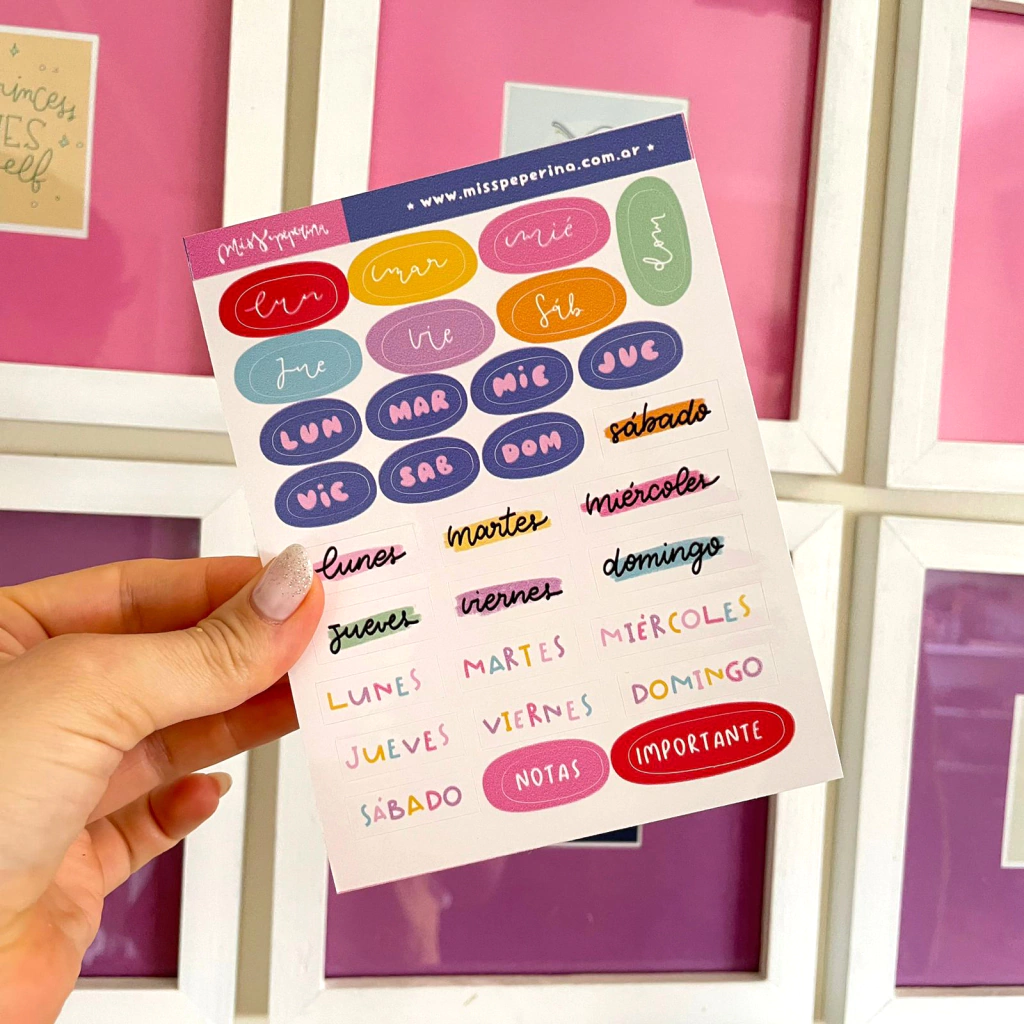 rincess
elf
Miss peperina
★ www.misspeperina.com.ar ★
lun
mar
mié
dom
Jue
vie
Sáb
LUN
MAR
MIE
JUE
VIE
SAB
DOM
sábado
lunes
martes
miércoles
jueves
viernes
domingo
LUNES
MARTES
MIÉRCOLES
JUEVES
VIERNES
DOMINGO
SÁBADO
NOTAS
IMPORTANTE